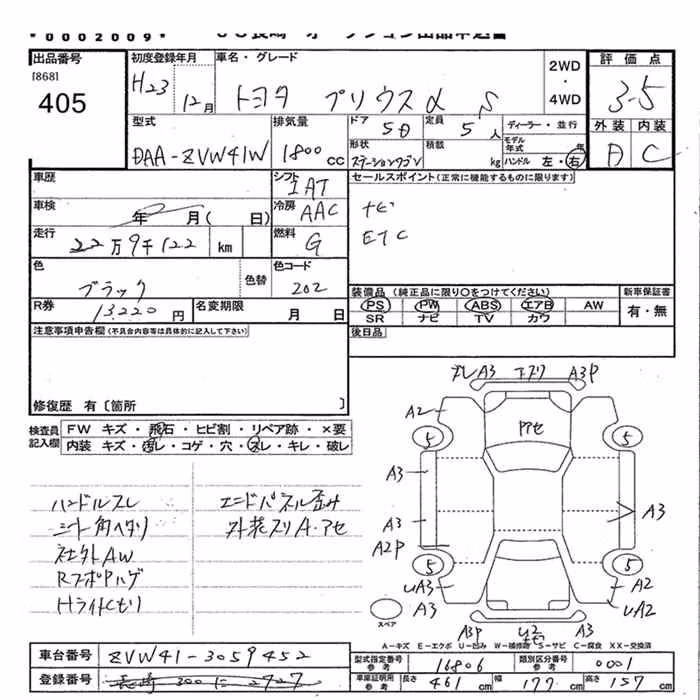 *0002009*
出品番号
[868]
405
初度登録年月
H23 12月
車名・グレード
トヨタ プリウスα S
2WD
・
4WD
評価点
3.5
外装 内装
A C
型式
DAA-ZVW41W
排気量
1800 cc
ドア
5D
定員
5人
形状
ステーションワゴン
積載
kg
ディーラー・並行
モデル年式 年
ハンドル 左・右
車歴
シフト
IAT
セールスポイント(正常に機能するものに限ります)
ナビ
ETC
車検
年 月( 日)
冷房
AAC
走行
22万9千122 km
燃料
G
色
ブラック
色替
色コード
202
R券
13,220円
名変期限
月 日
装備品 (純正品に限り○をつけてください)
PS PW ABS エアB AW
SR ナビ TV カワ
新車保証書
有・無
後日品
注意事項申告欄(不具合内容等は具体的に記入して下さい)
修復歴 有〔箇所 〕
検査員記入欄
FW キズ・飛石・ヒビ割・リペア跡・×要
内装 キズ・汚レ・コゲ・穴・スレ・キレ・破レ
ハンドルスレ
シート角ヘタリ
社外AW
エンドパネル歪み
外装スリA・アセ
A3 A3P
A2
アセ
5 5
A3
A3
A2P
A3
5 5
UA3
A3
A2
UA2
A3P
A3
スペア
A-キズ E-エクボ U-凹み W-補修跡 S-サビ C-腐食 XX-交換済
車台番号
ZVW41-3059452
登録番号
長崎 300 に 2727
型式指定番号
参考
16806
類別区分番号
参考
0001
車庫証明用
参考
長さ 461 cm
幅 177 cm
高さ 157 cm